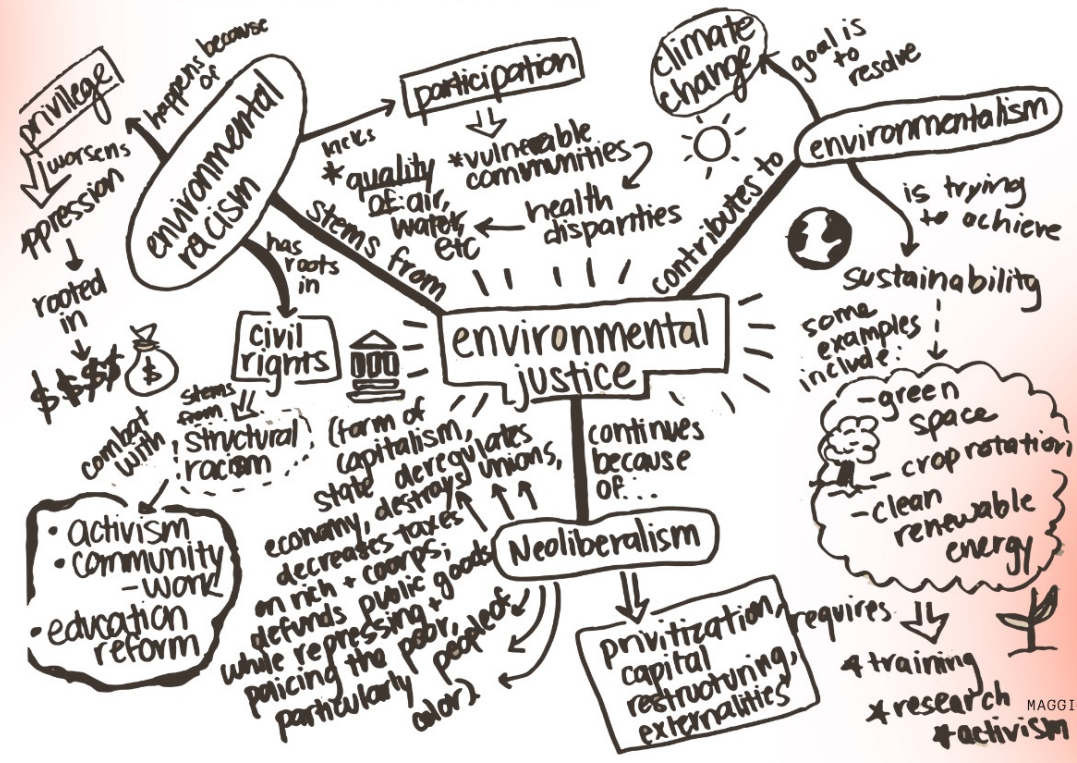 privilege
happens because
of
worsens
oppression
rooted
in
$ $ $ $
$
environmental
racism
lacks
participation
*vulnerable
communities
health
disparities
* quality
of: air,
water,
etc
stems from
has
roots
in
civil
rights
stems
from
structural
racism
combat
with
• activism
• community
- work
• education
reform
environmental
justice
contributes to
environmentalism
goal is
to
resolve
climate
change
is trying
to achieve
sustainability
some
examples
include:
- green
space
- crop rotation
- clean
renewable
energy
requires
* training
* research
* activism
MAGGI
continues
because
of...
Neoliberalism
(form of
capitalism,
state deregulates
economy, destroys unions,
decreases taxes
on rich + coorps;
defunds public goods
while repressing +
policing the poor,
particularly people of
color).
privitization,
capital
restructuring,
externalities